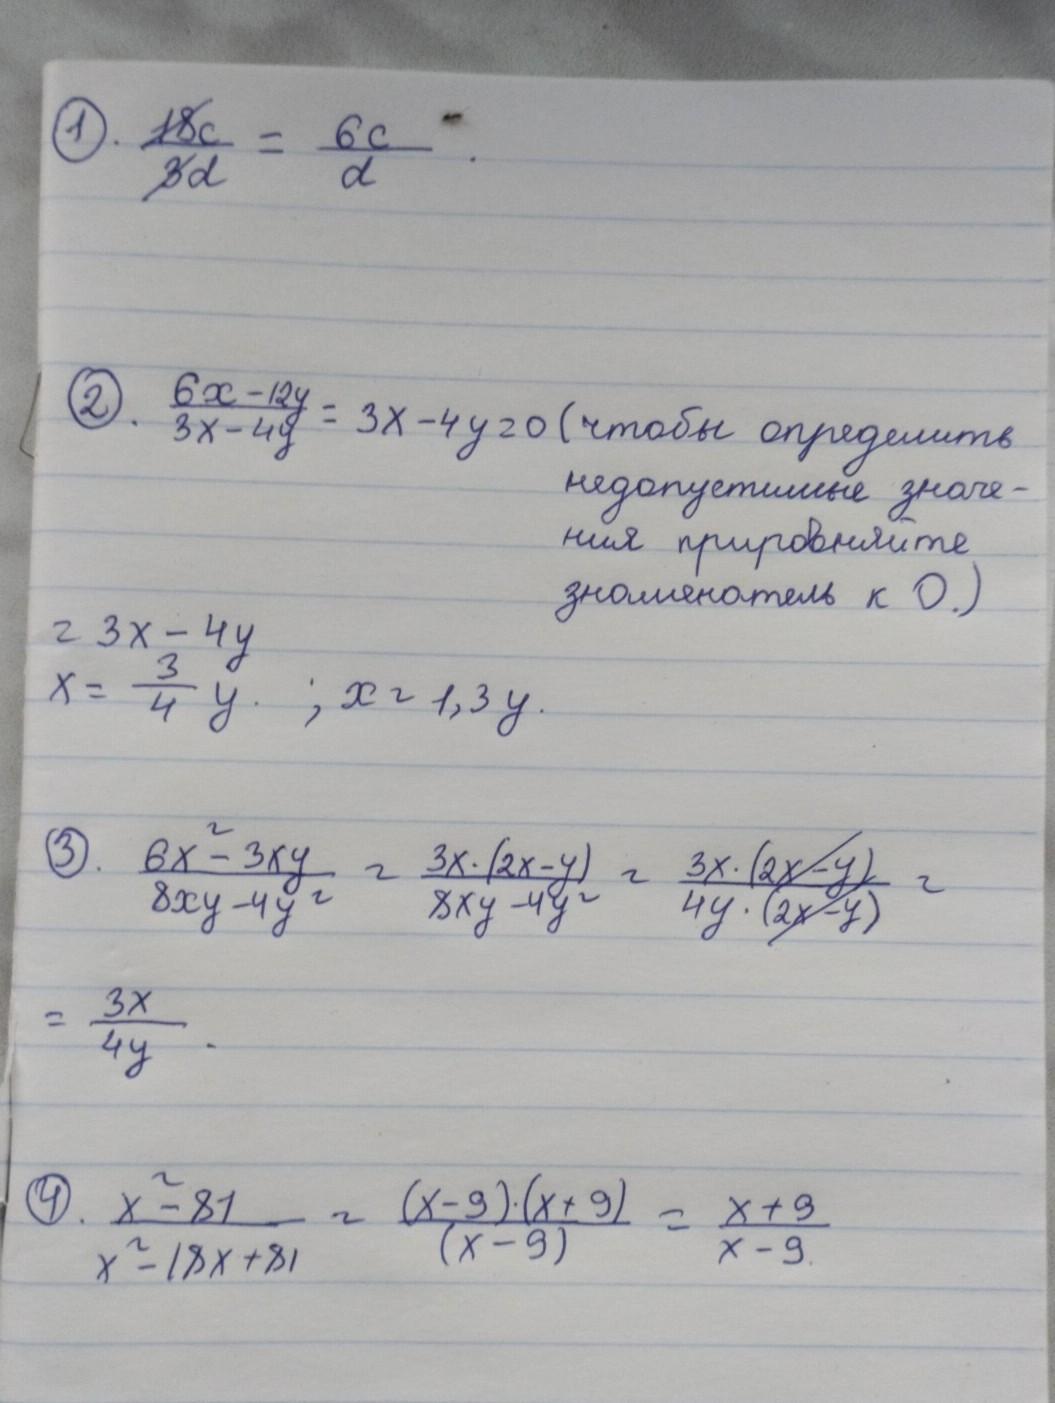 1. 18c/3d = 6c/d.
2. 6x-12y/3x-4y = 3x-4y=0 (чтобы определить
недопустимые значе-
ния прировняйте
знаменатель к 0.)
= 3x-4y
x = 3/4 y. ; x = 1,3y.
3. 6x²-3xy/8xy-4y² = 3x·(2x-y)/8xy-4y² = 3x·(2x-y)/4y·(2x-y) =
= 3x/4y.
4. x²-81/x²-18x+81 = (x-9)·(x+9)/(x-9) = x+9/x-9.